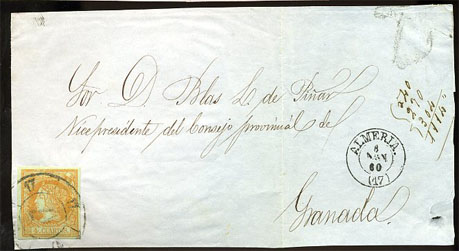 Sor D. Blas L. de Piñar
Vicepresidente del Consejo provincial de
Granada
ALMERIA
6
60
(17)
4 CUARTOS